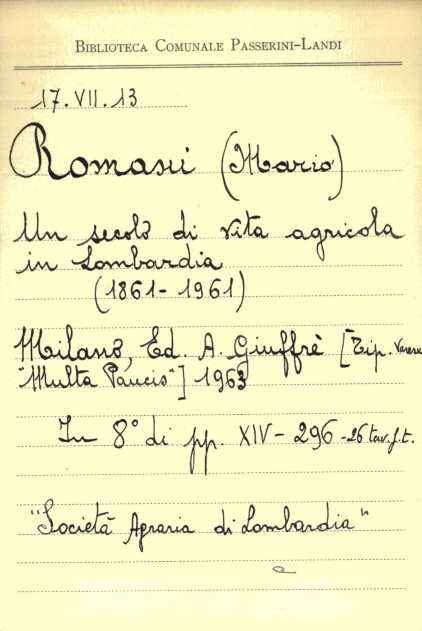 BIBLIOTECA COMUNALE PASSERINI-LANDI
17. VII. 13
Romani (Mario)
Un secolo di vita agricola
in Lombardia
(1861-1961)
Milano, Ed. A. Giuffrè [Tip.
"Multa Paucis"] 1963
In 8° di pp. XIV-296-26 tav. f.t.
"Società Agraria di Lombardia"